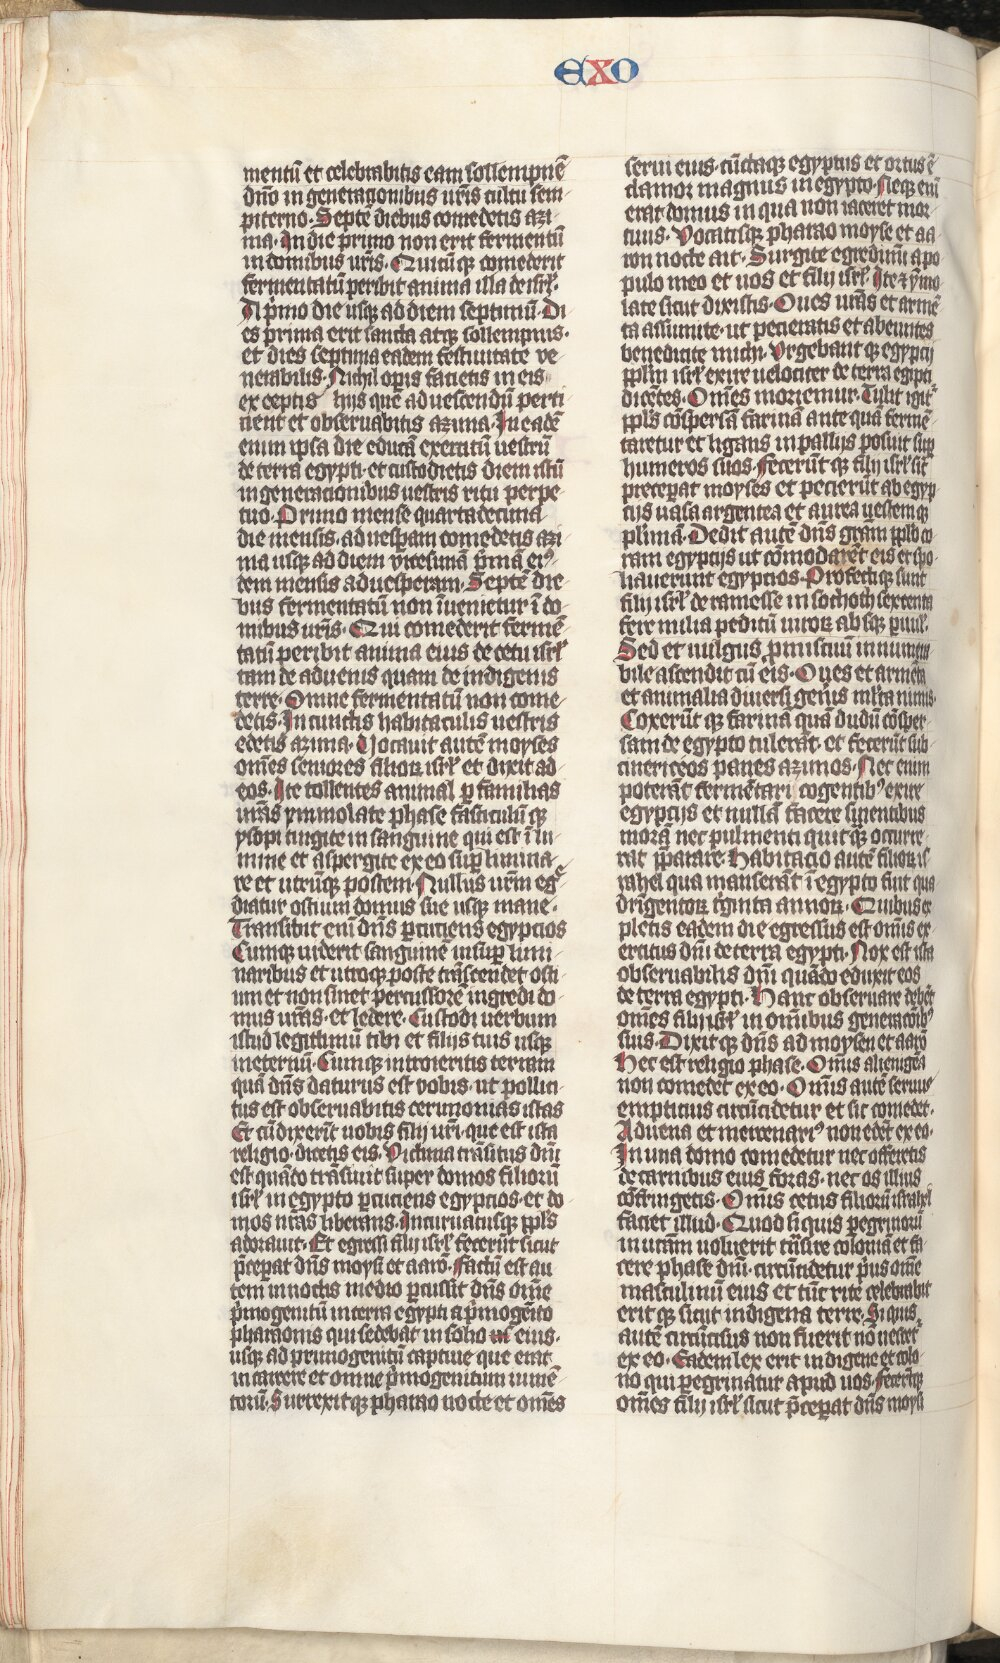 EXO
mentū et celebrabitis eam sollempnē
dn̄o in generationibus vr̄is cultu sem
piterno. Septē diebus comedetis azi
ma. In die primo non erit fermentū
in domibus vr̄is. Quicūq̨ comederit
fermentatū peribit anima illa de isrl̄.
A pͥmo die usq̨ ad diem septimū. Di
es prima erit sancta atq̨ sollempnis.
et dies septima eadem festiuitate ve
nerabilis. Nichil opis facietis in eis
exceptis hijs que ad uescendū perti
nent et observabitis azima. In eadē
enim ipsa die educā exercitū uestrū
de terra egypti. et custodietis diem istū
in generationibus uestris ritu perpe
tuo. Primo mense quartadecima
die mensis. ad uesperam comedetis azi
ma usq̨ ad diem vicesimā pͥmā eiꝰ
dem mensis ad uesperam. Septē die
bus fermentatū non īvenietur ī do
mibus vr̄is. Qui comederit fermē
tatū peribit anima eius de cetu isrl̄
tam de aduenis quam de indigenis
terre. Omne fermentatū non come
detis. In cunctis habitaculis uestris
edetis azima. Vocavit autē moyses
om̄es seniores filioꝝ isrl̄ et dixit ad
eos. Ite tollentes animal ꝑ familias
vr̄as ymmolate phase fasciculū q̨
ysopi tingite in sanguine qui est ī li
mine et aspergite ex eo suꝑ limina
re et utrūq̨ postem. Nullus vr̄m eg̅
diatur ostium domus sue usq̨ mane.
Transibit enī dn̄s ꝑcutiens egyptios
Cumq̨ viderit sanguinē in suꝑ limi
naribus et utroq̨ poste trāscendet osti
um et non sinet percussorē ingredi do
mus vr̄as. et ledere. Custodi verbum
istud legitimū tibi et filijs tuis usq̨
in eternū. Cumq̨ introieritis terram
quā dn̄s daturus est vobis. ut pollici
tus est observabitis cerimonias istas
Et cū dixerīt vobis filij vr̄i. que est ista
religio. dicetis eis. Victima trāsitus dn̄i
est quādo trāsivit super domos filiorū
isrl̄ in egypto ꝑcutiens egyptios. et do
mos nr̄as liberans. Incuruatusq̨ ppl̄s
adorauit. Et egressi filij isrl̄ fecerūt sicut
p̄ceꝑat dn̄s moysi et aarō. Factū est au
tem in noctis medio ꝑcussit dn̄s om̄e
pͥmogenitū in terra egypti a pͥmogēito
pharaonis qui sedebat in solio eius.
usq̨ ad primogenitū captiue que erat
in carcere et omne pͥmogenitum iumē
torū. Surrexitq̨ pharao nocte et om̄es
serui eius. cūctaq̨ egyptus et ortus ē
clamor magnus in egypto. Neq̨ enī
erat domus in qua non iaceret mor
tuus. Vocatisq̨ pharao moyse et aa
ron nocte ait. Surgite egredimī a po
pulo meo et vos et filij isrl̄. Ite ⁊ ȳmo
late sicut dixistis. Oues vr̄as et armē
ta assumite. ut petieratis et abeuntes
benedicite michi. Vrgebant q̨ egyptij
ppl̄m isrl̄ exire velociter de terra egipti
dicētes. Om̄es moriemur. Tulit igit̄
ppl̄s cōspersā farinā ante quā fermē
taretur et ligans in pallijs posuit suꝑ
humeros suos. Fecerūt q̨ filij isrl̄ sic̄
preceꝑat moyses et petierūt ab egyp
tijs uasa argentea et aurea uestemq̨
plimā. Dedit autē dn̄s gr̄am ppl̄o co
ram egyptijs ut cōmodarēt eis et spo
liauerunt egyptios. Profectiq̨ sunt
filij isrl̄ de ramesse in sochoth sexcenta
fere milia peditū viroꝝ absq̨ ꝑuul̄.
Sed et uulgus ꝓmiscuū innumera
bile ascendit cū eis. Oues et armēta
et animalia diuersi geñis ml̄ta nimis.
Coxerūt q̨ farinā quā dudū cōsper
sam de egypto tulerāt. et fecerūt sub
cinericeos panes azimos. Nec enim
poterāt fermētari cogentibꝰ exire
egyptijs et nullā facere sinentibus
morā nec pulmenti quitq̨ occurre
rāt p̄parare. Habitacio autē filioꝝ is
rahel qua manserāt ī egypto fuit qua
drigentoꝝ tͥginta annoꝝ. Quibus ex
pletis eadem die egressus est om̄is ex
ercitus dn̄i de terra egypti. Nox est ista
observabilis dn̄i quādo eduxit eos
de terra egypti. Hanc observare debēt
om̄es filij isrl̄ in om̄ibus generacōībꝰ
suis. Dixit q̨ dn̄s ad moysen et aarō
Hec est religio phase. Om̄is alienigēa
non comedet ex eo. Om̄is autē seruus
empticius circūcidetur et sic comedet.
Aduena et mercenariꝰ non edēt ex eo.
In una domo comedetur nec offeretis
de carnibus eius foras. nec os illius
cōfringetis. Om̄is cetus filiorū israhel
faciet illud. Quod si quis ꝑegrinorū
in vr̄am voluerit trāsire coloniā et fa
cere phase dn̄i. circūcidetur pͥus om̄e
masculinū eius et tūc rite celebrabit
erit q̨ sicut indigena terre. Si quis
autē circūcisus non fuerit nō vescet̄
ex eo. Eadem lex erit indigene et colo
no qui ꝑegrinatur apud uos. Fecerūtq̨
om̄es filij isrl̄ sicut p̄ceꝑat dn̄s moysi